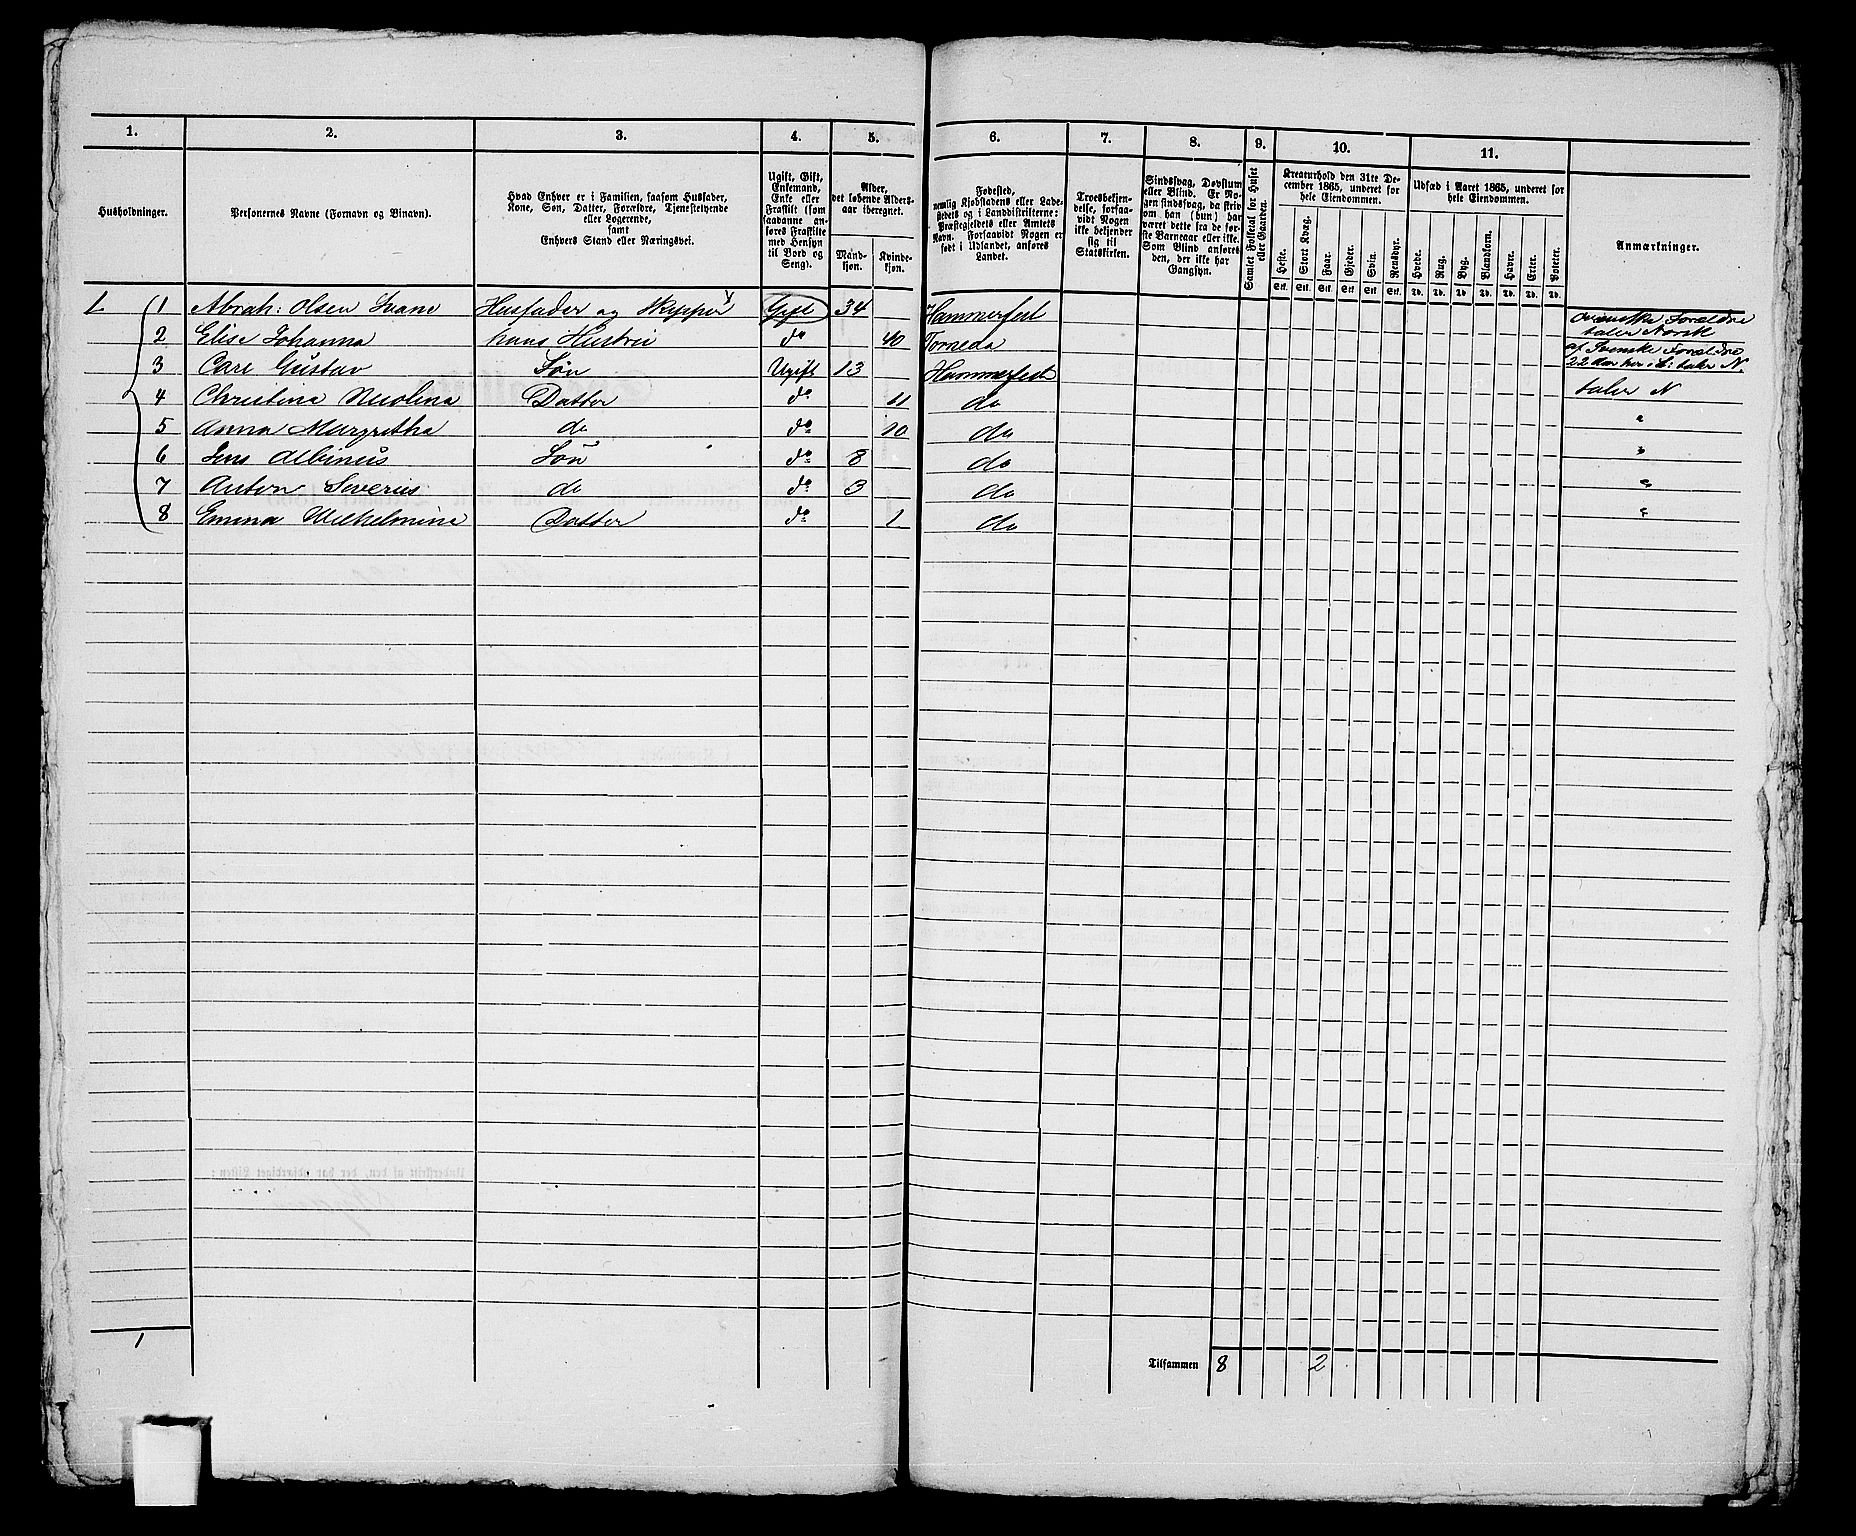 1. 2. 3. 4. 5. 6. 7. 8. 9. 10. 11.
Husholdninger.
Personernes Navne (Fornavn og Binavn).
Hvad Enhver er i Familien, saasom Husfader,
Kone, Søn, Datter, Forældre, Tjenestetyende
eller Logerende,
samt
Enhvers Stand eller Næringsvei.
Ugift, Gift,
Enkemand,
Enke eller
Fraskilt (som
saadanne an-
føres Fraskilte
med Hensyn
til Bord og
Seng).
Alder,
det løbende Alders-
aar iberegnet.
Mand-
kjøn.
Kvinde-
kjøn.
Fødested,
nemlig Kjøbstadens eller Lade-
stedets og i Landdistrikterne:
Præstegjeldets eller Amtets
Navn. Forsaavidt Nogen er
født i Udlandet, anføres
Landet.
Troesbekjen-
delse, forsaa-
vidt Nogen
ikke bekjender
sig til
Statskirken.
Sindssvag, Døvstum
eller Blind. Er No-
gen sindssvag, da skriv
om han (hun) har
været dette fra de før-
ste Barneaar eller ikke.
Som Blind anføres
den, der ikke har
Gangsyn.
Samlet Folketal for Huset
eller Gaarden.
Kreaturhold den 31te De-
cember 1865, underet for
hele Eiendommen.
Heste. Stort Kvæg. Faar. Gjeder. Svin. Rensdyr.
Stk. Stk. Stk. Stk. Stk. Stk.
Udsæd i Aaret 1865, underet for
hele Eiendommen.
Hvede. Rug. Byg. Blandkorn. Havre. Erter. Poteter.
Td. Td. Td. Td. Td. Td. Td.
Anmærkninger.
1 Abrah: Olsen Svane Husfader og Skipper Gift 34 Hammerfest Svenske Forældre
taler Norsk
2 Elise Johanna hans Hustru do 40 Torneda af Svenske Forældre
22 Aar her i L: taler N.
3 Carl Gustav Søn Ugift 13 Hammerfest
4 Christina Nicolina Datter do 11 do taler N
5 Anna Margretha do do 10 do "
6 Jens Albinus Søn do 8 do "
7 Anton Severius do do 3 do "
8 Emma Wilhelmine Datter do 1 do "
1
Tilsammen 8 2
Underskrift af den, der har udfærdiget Listen: